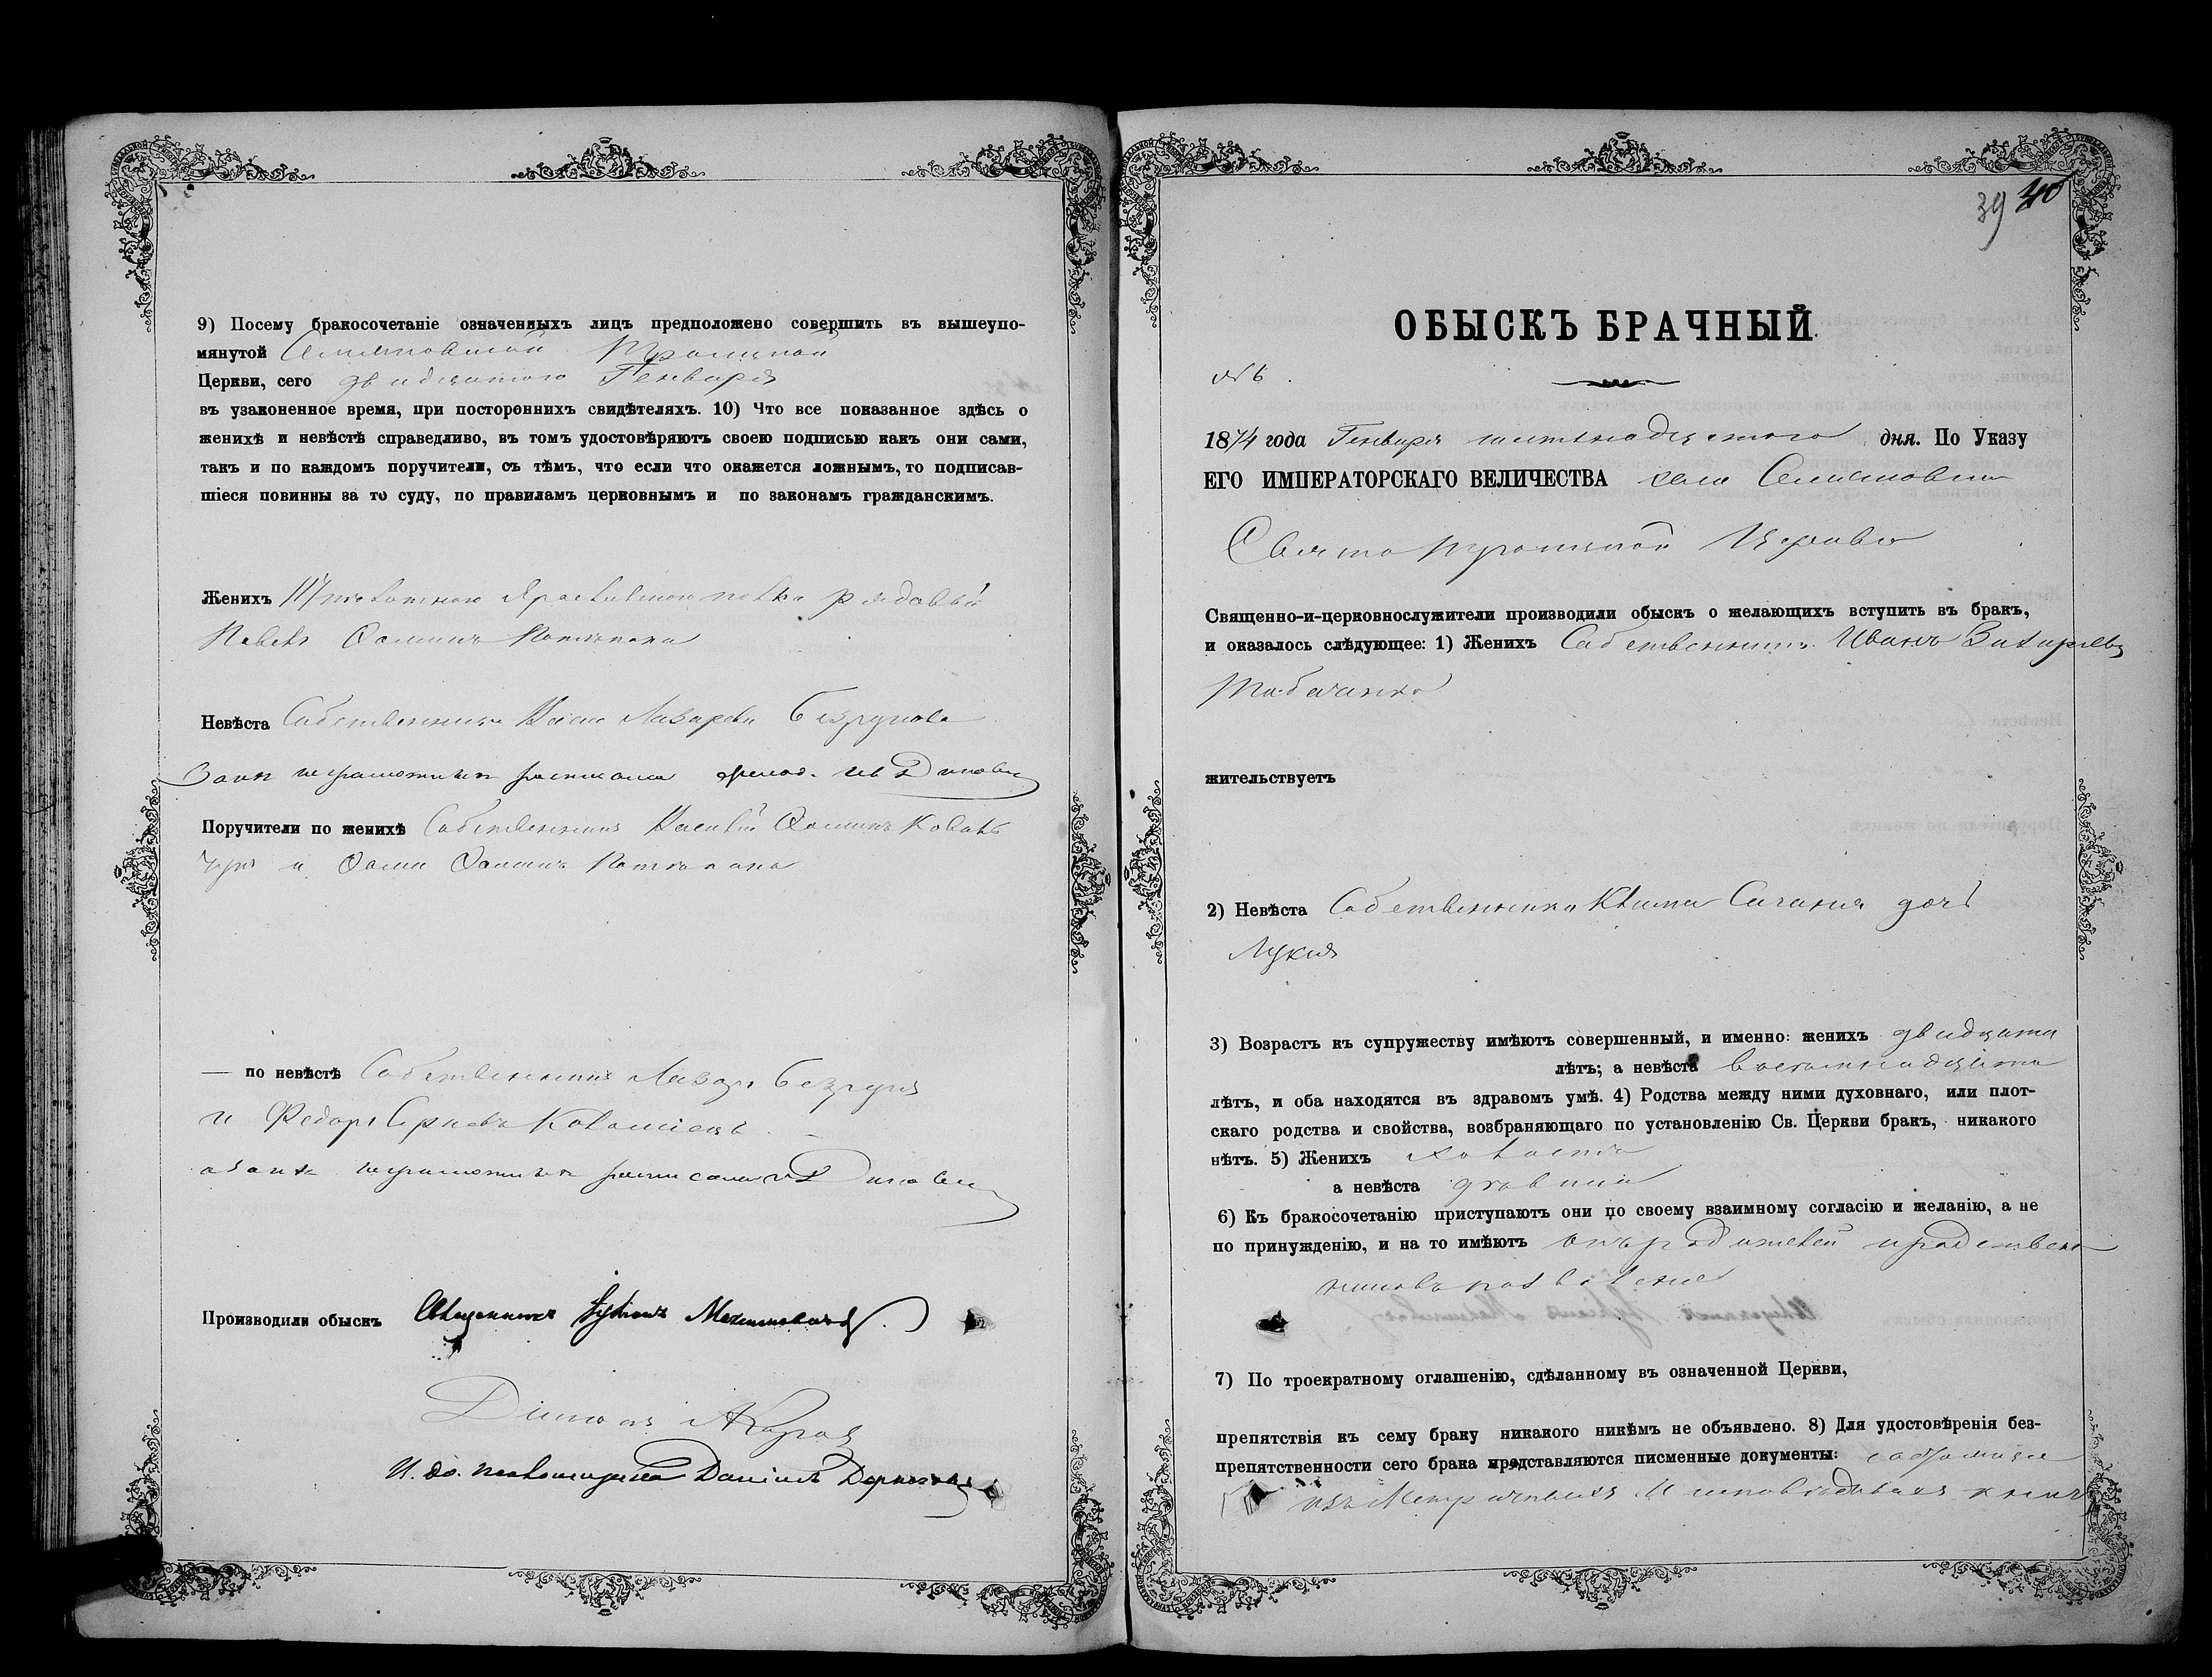 9) Посему бракосочетаніе означенныхъ лицъ предположено совершить въ вышеупо-
мянутой Троицкой
Церкви, сего двадцатого Генваря
въ узаконенное время, при постороннихъ свидѣтеляхъ. 10) Что все показанное здѣсь о
женихѣ и невѣстѣ справедливо, въ томъ удостовѣряютъ своею подписью какъ они сами,
такъ и по каждомъ поручители, съ тѣмъ, что если что окажется ложнымъ, то подписав-
шіеся повинны за то суду, по правиламъ церковнымъ и по законамъ гражданскимъ.
Женихъ полка рядовый
Павелъ Фоминъ
Невѣста Собственника Лазарева
неграмотныхъ
Поручители по женихѣ Собственникъ Василій Фоминъ Коваль
чукъ и Фома Фоминъ
— по невѣстѣ Собственникъ Лазарь
и Федоръ Коломіецъ
неграмотныхъ
Производили обыскъ Священникъ
Дьячокъ
И. до. пономаря Даніилъ
39 40
ОБЫСКЪ БРАЧНЫЙ.
№ 6.
1874 года Генваря шестнадцатого дня. По Указу
ЕГО ИМПЕРАТОРСКАГО ВЕЛИЧЕСТВА села
Свято Троицкой Церкви
Священно-и-церковнослужители производили обыскъ о желающихъ вступить въ бракъ,
и оказалось слѣдующее: 1) Женихъ Собственникъ Иванъ Захаріевъ
жительствуетъ
2) Невѣста Собственника Клима дочь
Лукія
3) Возрастъ къ супружеству имѣютъ совершенный, и именно: женихъ двадцати
лѣтъ; а невѣста восемнадцати
лѣтъ, и оба находятся въ здравомъ умѣ. 4) Родства между ними духовнаго, или плот-
скаго родства и свойства, возбраняющаго по установленію Св. Церкви бракъ, никакого
нѣтъ. 5) Женихъ холостъ
а невѣста дѣвица
6) Къ бракосочетанію приступаютъ они по своему взаимному согласію и желанію, а не
по принужденію, и на то имѣютъ отъ родителей и родствен
никовъ позволеніе
7) По троекратному оглашенію, сдѣланному въ означенной Церкви,
препятствія къ сему браку никакого никѣмъ не объявлено. 8) Для удостовѣренія без-
препятственности сего брака представляются писменные документы:
изъ Метрическихъ И исповѣдныхъ книгъ